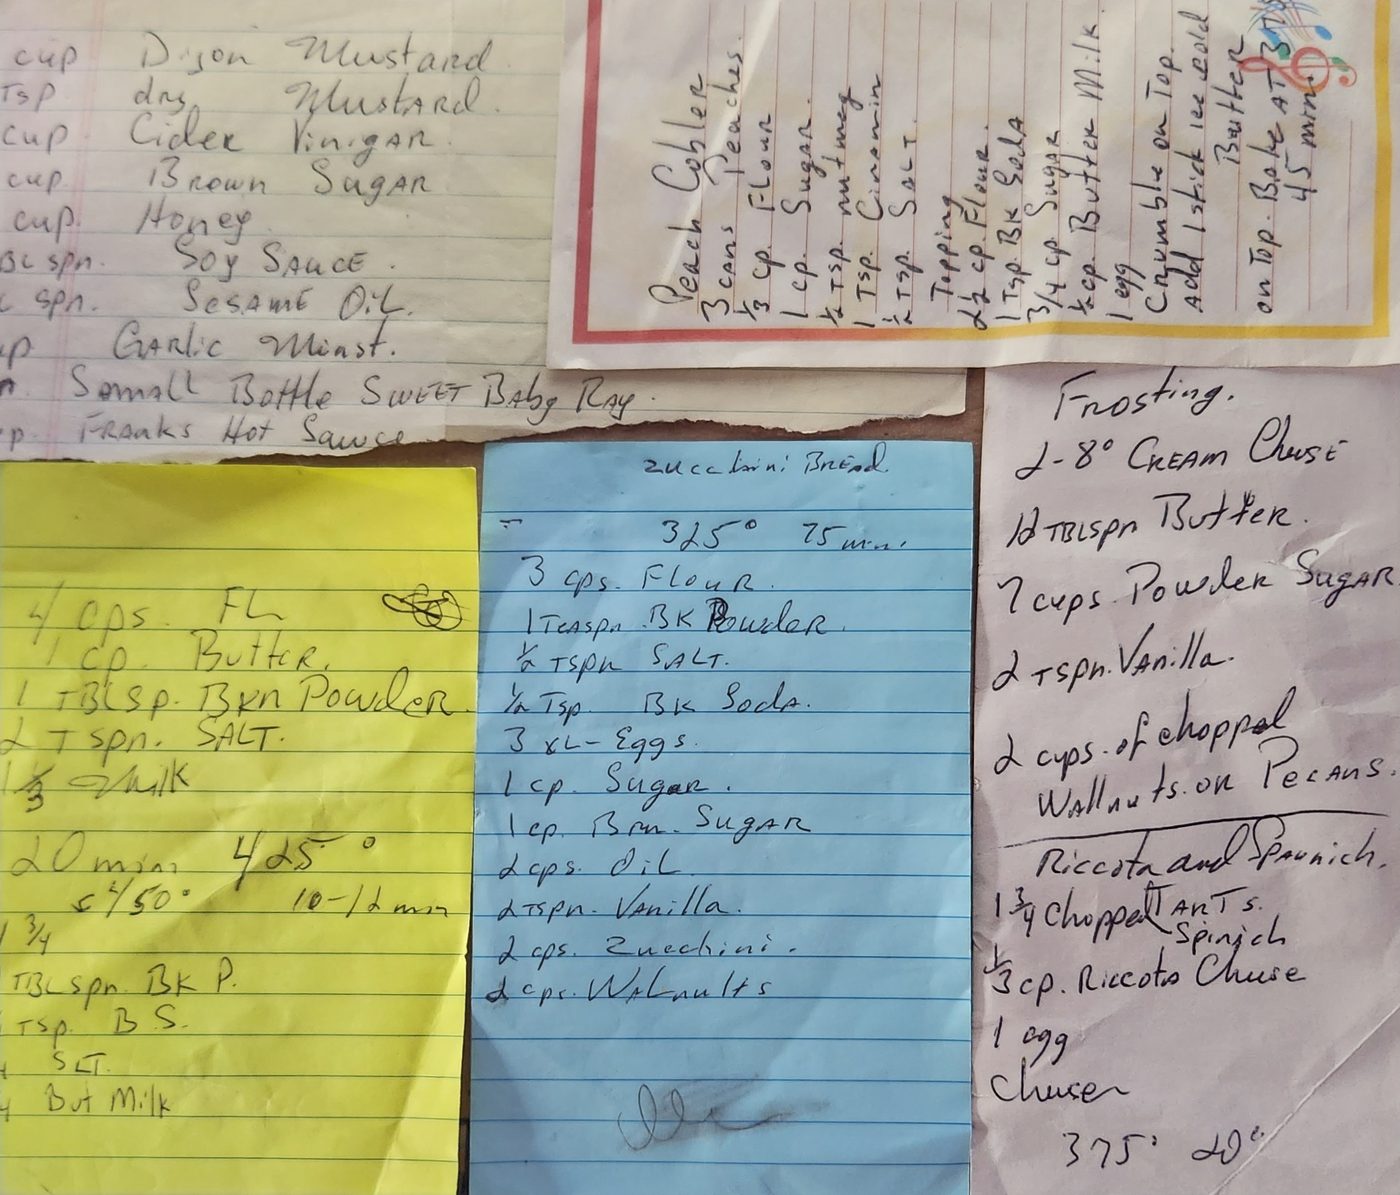 cup Dijon Mustard
Tsp dry Mustard.
cup Cider Vinigar
cup Brown Sugar
cup. Honey
BL spn. Soy Sauce.
spn. Sesame Oil.
Garlic Minst.
Somall Bottle Sweet Baby Ray.
Franks Hot Sauuce
Peach Cobler
3 cans Peaches.
1/3 cp. Flour
1 cp. Sugar.
1/2 Tsp. nutmeg
1 Tsp. Cinamin
1/2 Tsp. Salt.
Topping
2 1/2 cp Flour.
1 Tsp. BK Soda
3/4 cp Sugar
1/2 cp. Butter Milk.
1 egg
Crumble on Top.
Add 1 stick ice cold
Butter
on Top. Bake AT
45 min.
4 cps. FL
1 cp. Butter.
1 TBLSp. Bkn Powder.
2 Tspn. SALT.
1 1/3 Milk
20 min 425°
450° 10-12 min
1 3/4
TBLspn. BK P.
Tsp. B S.
SLT.
But Milk
Zucchini Bread
325° 75 min.
3 cps. Flour.
1 Teaspn. BK Powder.
1/2 Tspn SALT.
1/2 Tsp. BK Soda.
3 XL-Eggs.
1 cp. Sugar.
1 cp. Brn. Sugar
2 cps. Oil.
2 Tspn. Vanilla.
2 cps. Zucchini.
2 cps. Walnults
Frosting.
2-8° Cream Cheese
12 TBLspn Butter.
7 cups. Powder Sugar
2 Tspn. Vanilla.
2 cups. of chopped
Wallnuts. or Pecans.
Riccota and Spaunich.
Tarts.
1 3/4 Chopped Spinich
1/3 cp. Riccota Cheese
1 egg
375° 20°